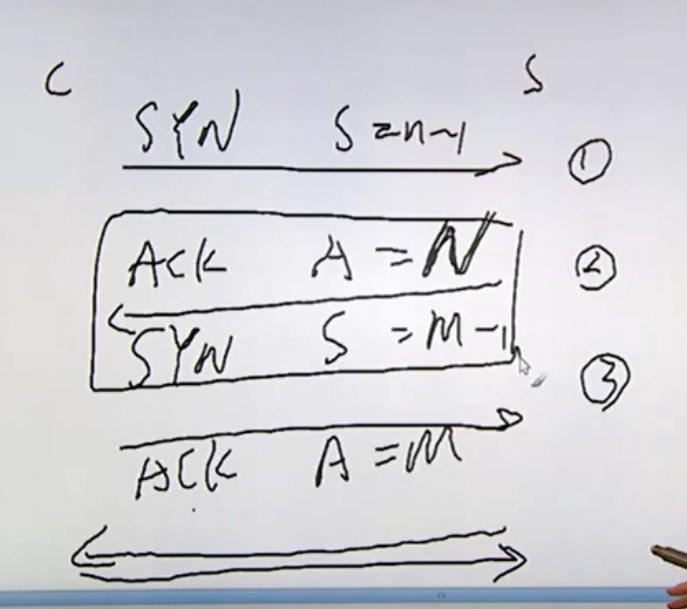 C S
SYN S=n-1 ①
ACK A=N ②
SYN S=M-1
③
ACK A=M